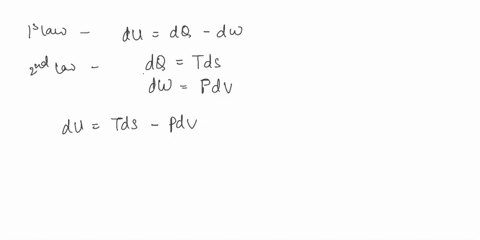 1st law - dU = dQ - dw
2nd law - dQ = Tds
dW = Pdv
dU = Tds - Pdv